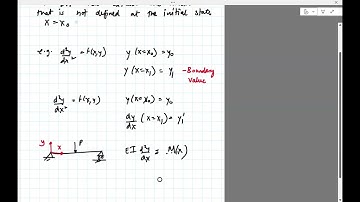 that is not defined at the initial state
x = x₀
e.g. d²y/dx² = f(x,y)   y(x=x₀) = y₀
y(x=x₁) = y₁ - Boundary Value
d²y/dx² = f(x,y)   y(x=x₀) = y₀
dy/dx (x=x₁) = y₁'
y x P   EI d²y/dx = M(x)